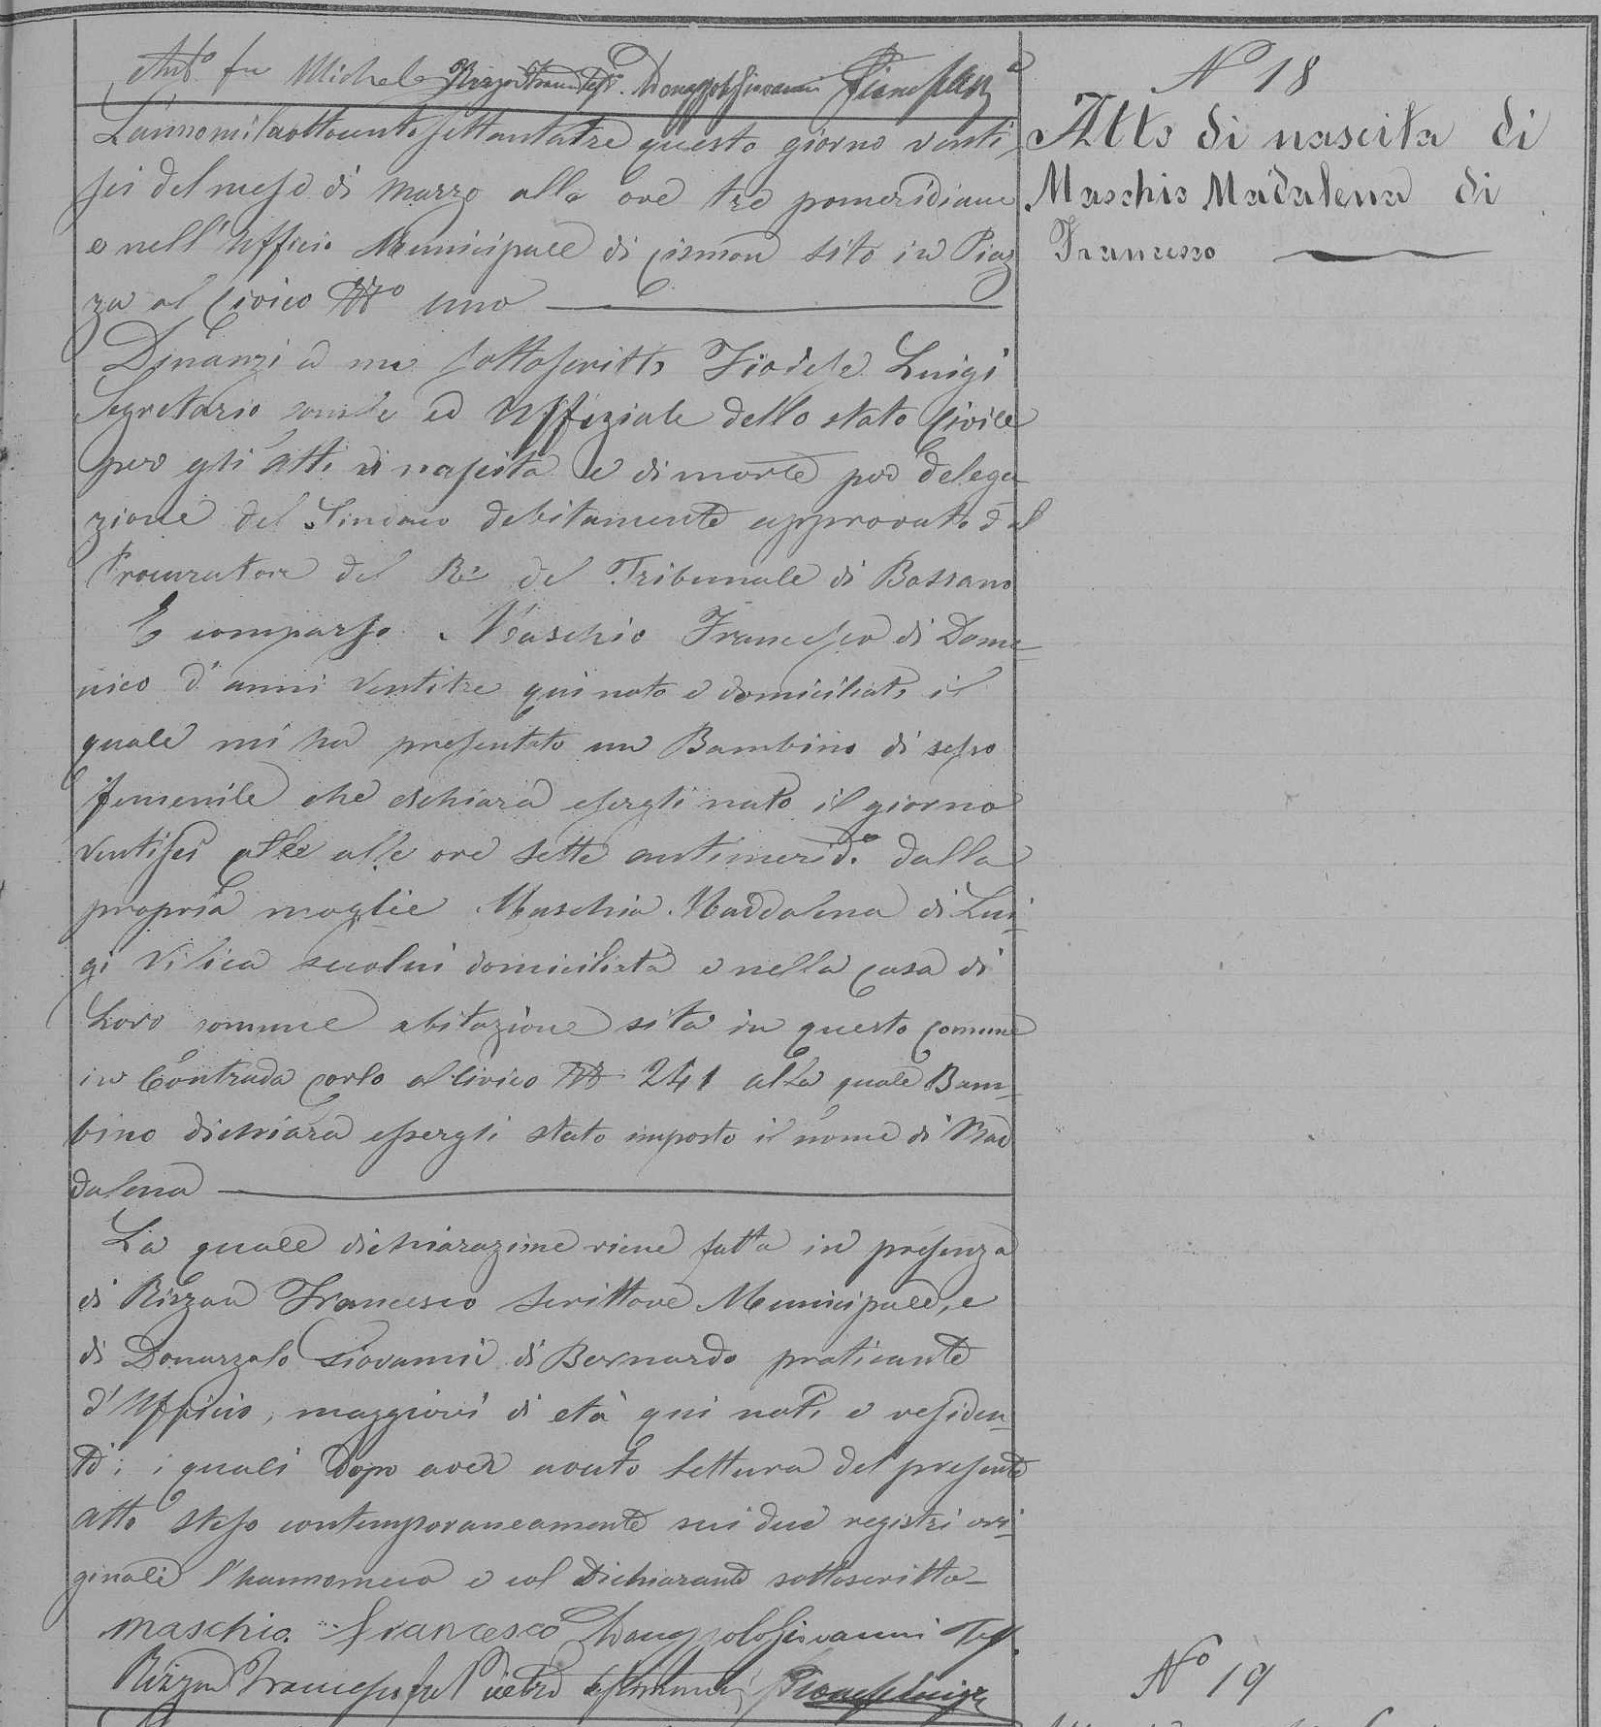 Ant.° fu Michele Rizzon Francesco Donazzolo Giovanni
L'anno milaottocento settantatre questo giorno venti
sei del mese di Marzo alle ore tre pomeridiane
e nell'Ufficio Municipale di Cismon sito in Piaz
za al Civico N° uno
Dinanzi a me sottoscritto Luigi
Segretario Comle ed Uffiziale dello stato Civile
per gli atti di nascita e di morte per delega-
zione del Sindaco debitamente approvata dal
Procuratore del Re del Tribunale di Bassano
È comparso Maschio Francesco di Dome-
nico d'anni ventitre qui nato e domiciliato il
quale mi ha presentato un Bambino di sesso
femenile che dichiara essergli nato il giorno
ventisei alle ore sette antimerid.e dalla
propria moglie Maschio Maddalena di Lui-
gi Villica seco lui domiciliata e nella casa di
Loro comune abitazione sita in questo Comune
in Contrada Corlo al civico N 241 alla quale Bam-
bino dichiara essergli stato imposto il nome di Mad
dalena
La quale dichiarazione viene fatta in presenza
di Rizzon Francesco Scrittore Municipale, e
di Donazzolo Giovanni di Bernardo praticante
d'Ufficio, maggiori di età qui nati e residen-
ti; i quali dopo aver avuto lettura del presente
atto steso contemporaneamente sui due registri ori-
ginali l'hanno meco e col Dichiarante sottoscritto
maschio francesco Donazzolo Giovanni Test.
Rizzon Francesco fu Pietro testimonio
N° 18
Atto di nascita di
Maschio Madalena di
Francesco
N° 19